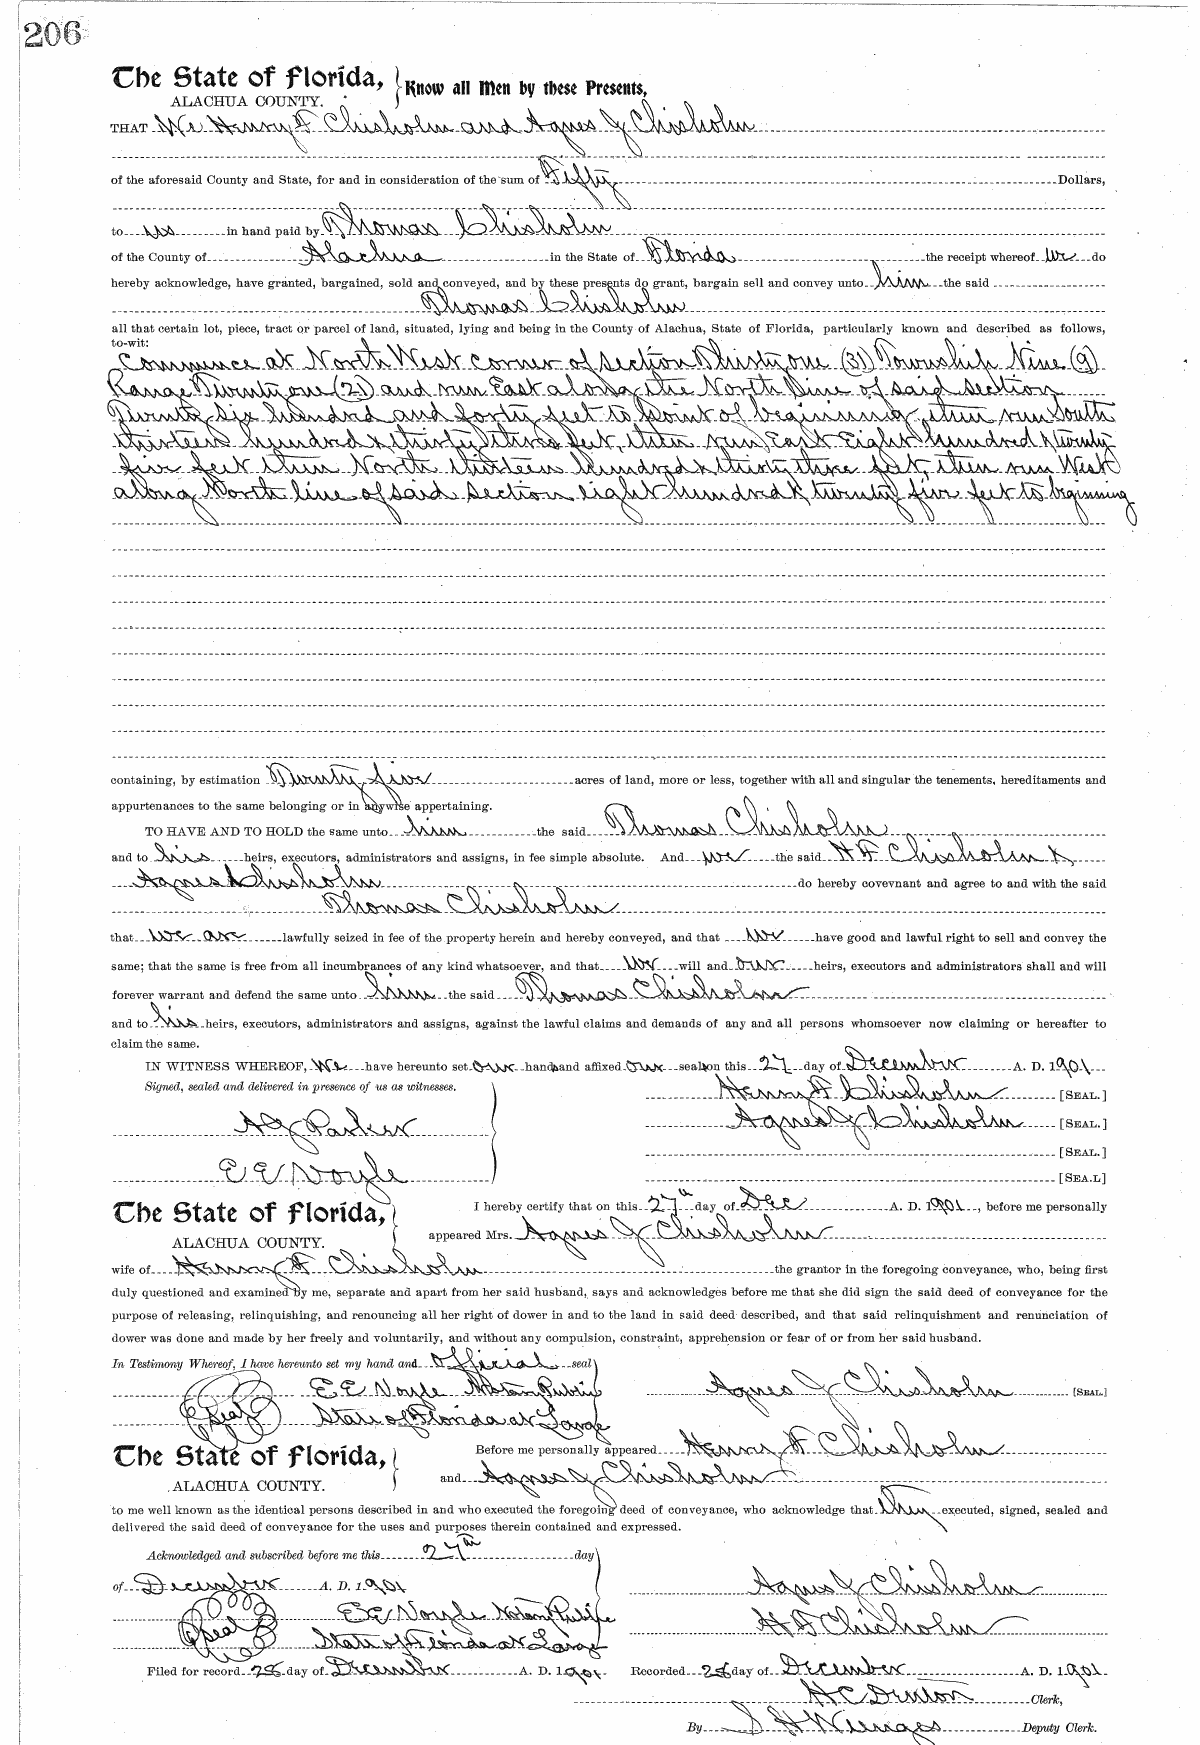 206
The State of Florida, Know all Men by these Presents,
ALACHUA COUNTY.
THAT We Henry F Chisholm and Agnes J Chisholm
of the aforesaid County and State, for and in consideration of the sum of Fifty Dollars,
to us in hand paid by Thomas Chisholm
of the County of Alachua in the State of Florida the receipt whereof we do
hereby acknowledge, have granted, bargained, sold and conveyed, and by these presents do grant, bargain sell and convey unto him the said
Thomas Chisholm
all that certain lot, piece, tract or parcel of land, situated, lying and being in the County of Alachua, State of Florida, particularly known and described as follows,
to-wit:
Commence at North West corner of section Thirty one (31) Township Nine (9)
Range Twenty one (21) and run East along the North Line of said section
Twenty Six hundred and forty feet to point of beginning, then run South
thirteen hundred & thirty three feet, then run East Eight hundred & twenty
five feet then North thirteen hundred & thirty three feet, then run West
along North line of said section eight hundred & twenty five feet to beginning
containing, by estimation Twenty five acres of land, more or less, together with all and singular the tenements, hereditaments and
appurtenances to the same belonging or in anywise appertaining.
TO HAVE AND TO HOLD the same unto him the said Thomas Chisholm
and to his heirs, executors, administrators and assigns, in fee simple absolute. And we the said H F Chisholm &
Agnes Chisholm do hereby covevnant and agree to and with the said
Thomas Chisholm
that we are lawfully seized in fee of the property herein and hereby conveyed, and that we have good and lawful right to sell and convey the
same; that the same is free from all incumbrances of any kind whatsoever, and that we will and our heirs, executors and administrators shall and will
forever warrant and defend the same unto him the said Thomas Chisholm
and to his heirs, executors, administrators and assigns, against the lawful claims and demands of any and all persons whomsoever now claiming or hereafter to
claim the same.
IN WITNESS WHEREOF, We have hereunto set our hands and affixed our seals on this 27 day of December A. D. 1901
Signed, sealed and delivered in presence of us as witnesses. Henry F Chisholm [SEAL.]
Agnes J Chisholm [SEAL.]
A J Parker
[SEAL.]
E E Voyle [SEA.L]
The State of Florida, I hereby certify that on this 27th day of Dec A. D. 1901, before me personally
ALACHUA COUNTY. appeared Mrs. Agnes J Chisholm
wife of Henry F Chisholm the grantor in the foregoing conveyance, who, being first
duly questioned and examined by me, separate and apart from her said husband, says and acknowledges before me that she did sign the said deed of conveyance for the
purpose of releasing, relinquishing, and renouncing all her right of dower in and to the land in said deed described, and that said relinquishment and renunciation of
dower was done and made by her freely and voluntarily, and without any compulsion, constraint, apprehension or fear of or from her said husband.
In Testimony Whereof, I have hereunto set my hand and official seal
E E Voyle Notary Public Agnes J Chisholm [SEAL]
Seal State of Florida at Large
The State of Florida, Before me personally appeared Henry F Chisholm
ALACHUA COUNTY. and Agnes J Chisholm
to me well known as the identical persons described in and who executed the foregoing deed of conveyance, who acknowledge that they executed, signed, sealed and
delivered the said deed of conveyance for the uses and purposes therein contained and expressed.
Acknowledged and subscribed before me this 27th day
of December A. D. 1901 Agnes J Chisholm
E E Voyle Notary Public H F Chisholm
Seal State of Florida at Large
Filed for record 28 day of December A. D. 1901 Recorded 28 day of December A. D. 1901
H C Denton Clerk,
By S H Wienges Deputy Clerk.